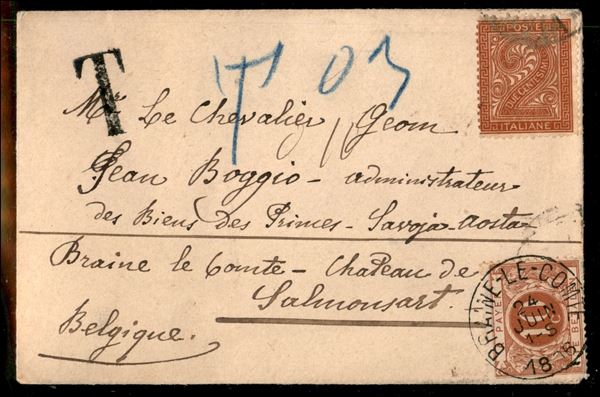 T
T 03
POSTE
DUE CENTESIMI
2
ITALIANE
Mr Le Chevalier Geom
Jean Boggio - administrateur
des Biens des Prines - Savoja-Aosta
Braine le Comte - Chateau de
Salmonsart.
Belgique.
BRAINE-LE-COMTE
24
JUIN
1-S
18
PAYER
E BE